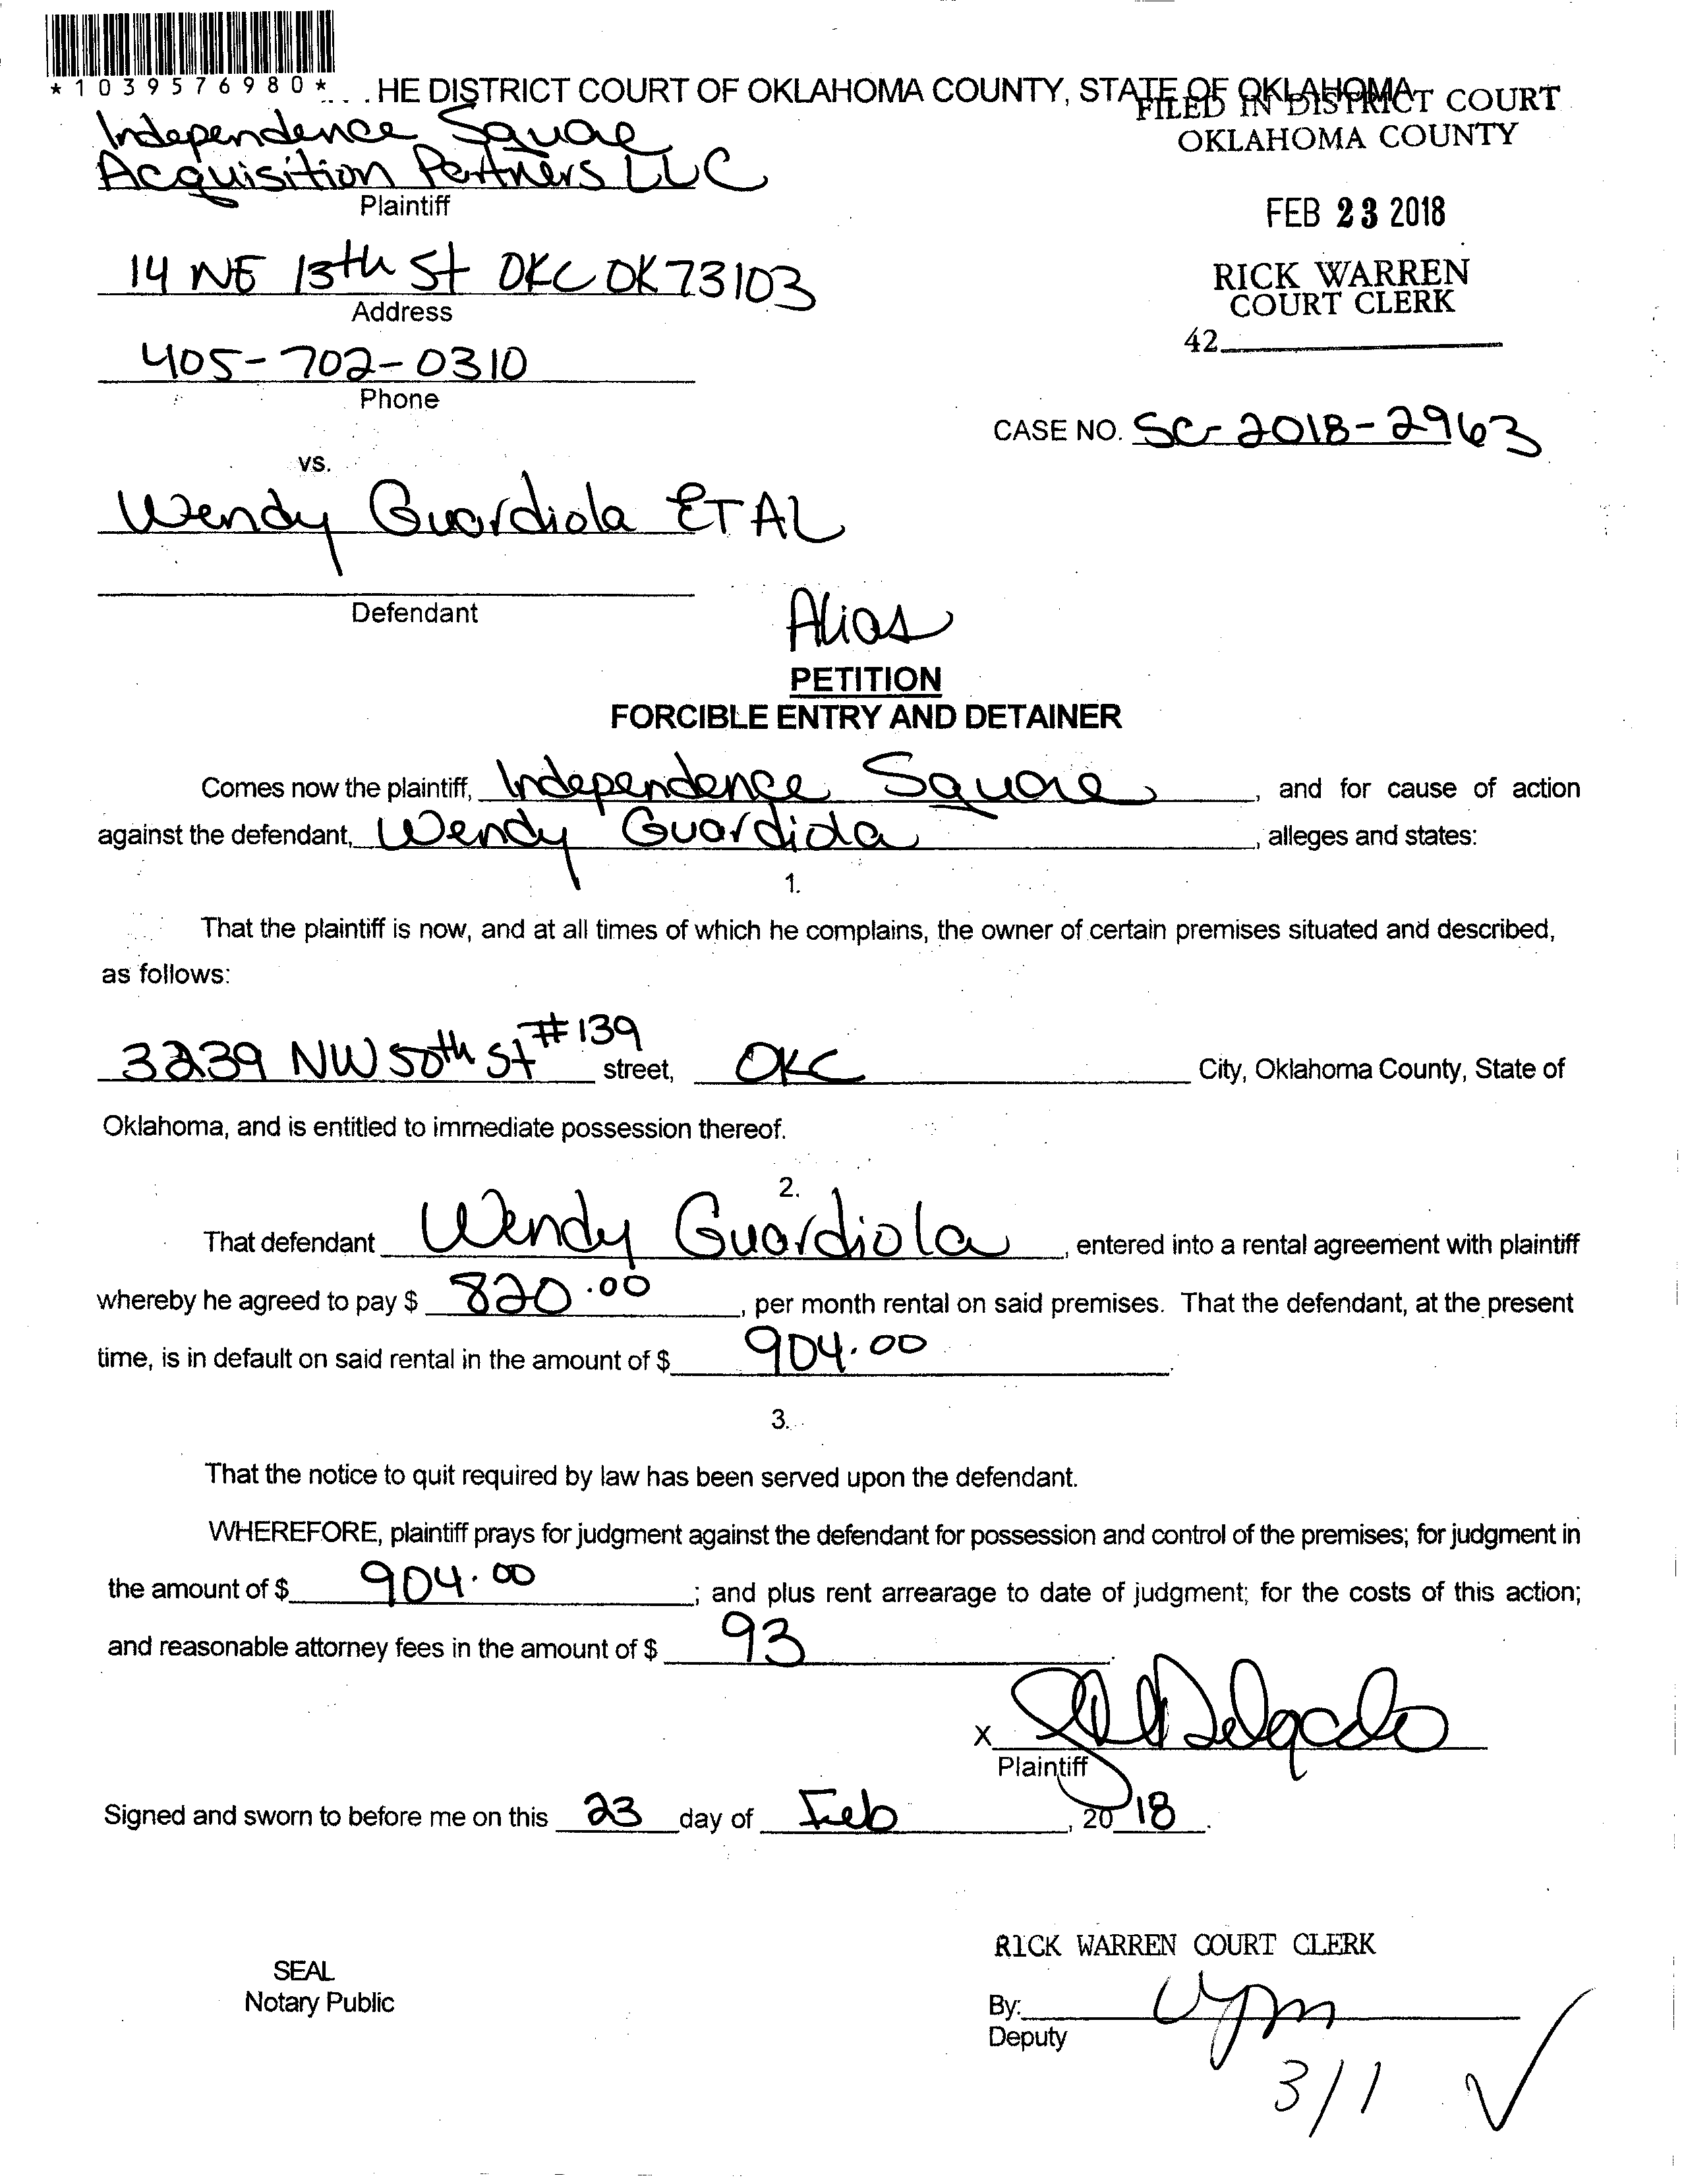 *1039576980*
HE DISTRICT COURT OF OKLAHOMA COUNTY, STATE OF OKLAHOMA
FILED IN DISTRICT COURT
OKLAHOMA COUNTY
Independence Square
Acquisition Partners LLC
Plaintiff
FEB 23 2018
14 NE 13th St OKC OK 73103
Address
RICK WARREN
COURT CLERK
42
405-702-0310
Phone
CASE NO. SC-2018-2963
vs.
Wendy Guardiola ET AL
Defendant
Alias
PETITION
FORCIBLE ENTRY AND DETAINER
Comes now the plaintiff, Independence Square, and for cause of action
against the defendant, Wendy Guardiola, alleges and states:
1.
That the plaintiff is now, and at all times of which he complains, the owner of certain premises situated and described,
as follows:
3239 NW 50th St #139 street, OKC City, Oklahoma County, State of
Oklahoma, and is entitled to immediate possession thereof.
2.
That defendant Wendy Guardiola, entered into a rental agreement with plaintiff
whereby he agreed to pay $ 820.00, per month rental on said premises. That the defendant, at the present
time, is in default on said rental in the amount of $ 904.00.
3.
That the notice to quit required by law has been served upon the defendant.
WHEREFORE, plaintiff prays for judgment against the defendant for possession and control of the premises; for judgment in
the amount of $ 904.00; and plus rent arrearage to date of judgment; for the costs of this action;
and reasonable attorney fees in the amount of $ 93.
X Delgado
Plaintiff
Signed and sworn to before me on this 23 day of Feb, 20 18.
RICK WARREN COURT CLERK
SEAL
Notary Public
By:
Deputy
3/1